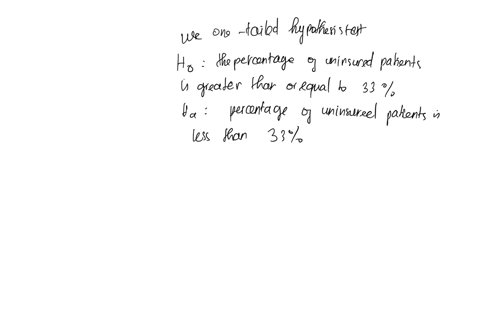 we one-tailed hypothesis test
H₀: the percentage of uninsured patients
is greater than or equal to 33%
Ha: percentage of uninsured patients is
less than 33%